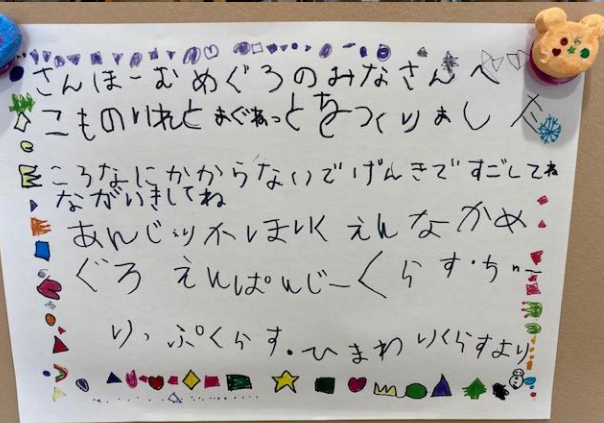 さんほーむめぐろのみなさんへ
こものいれとまぐねっとをつくりました
ころなにかからないでげんきですごしてね
ながいきしてね
あんじゅほいくえんなかめ
ぐろえんぱんじーくらす・ちゅー
りっぷくらす・ひまわりくらすより